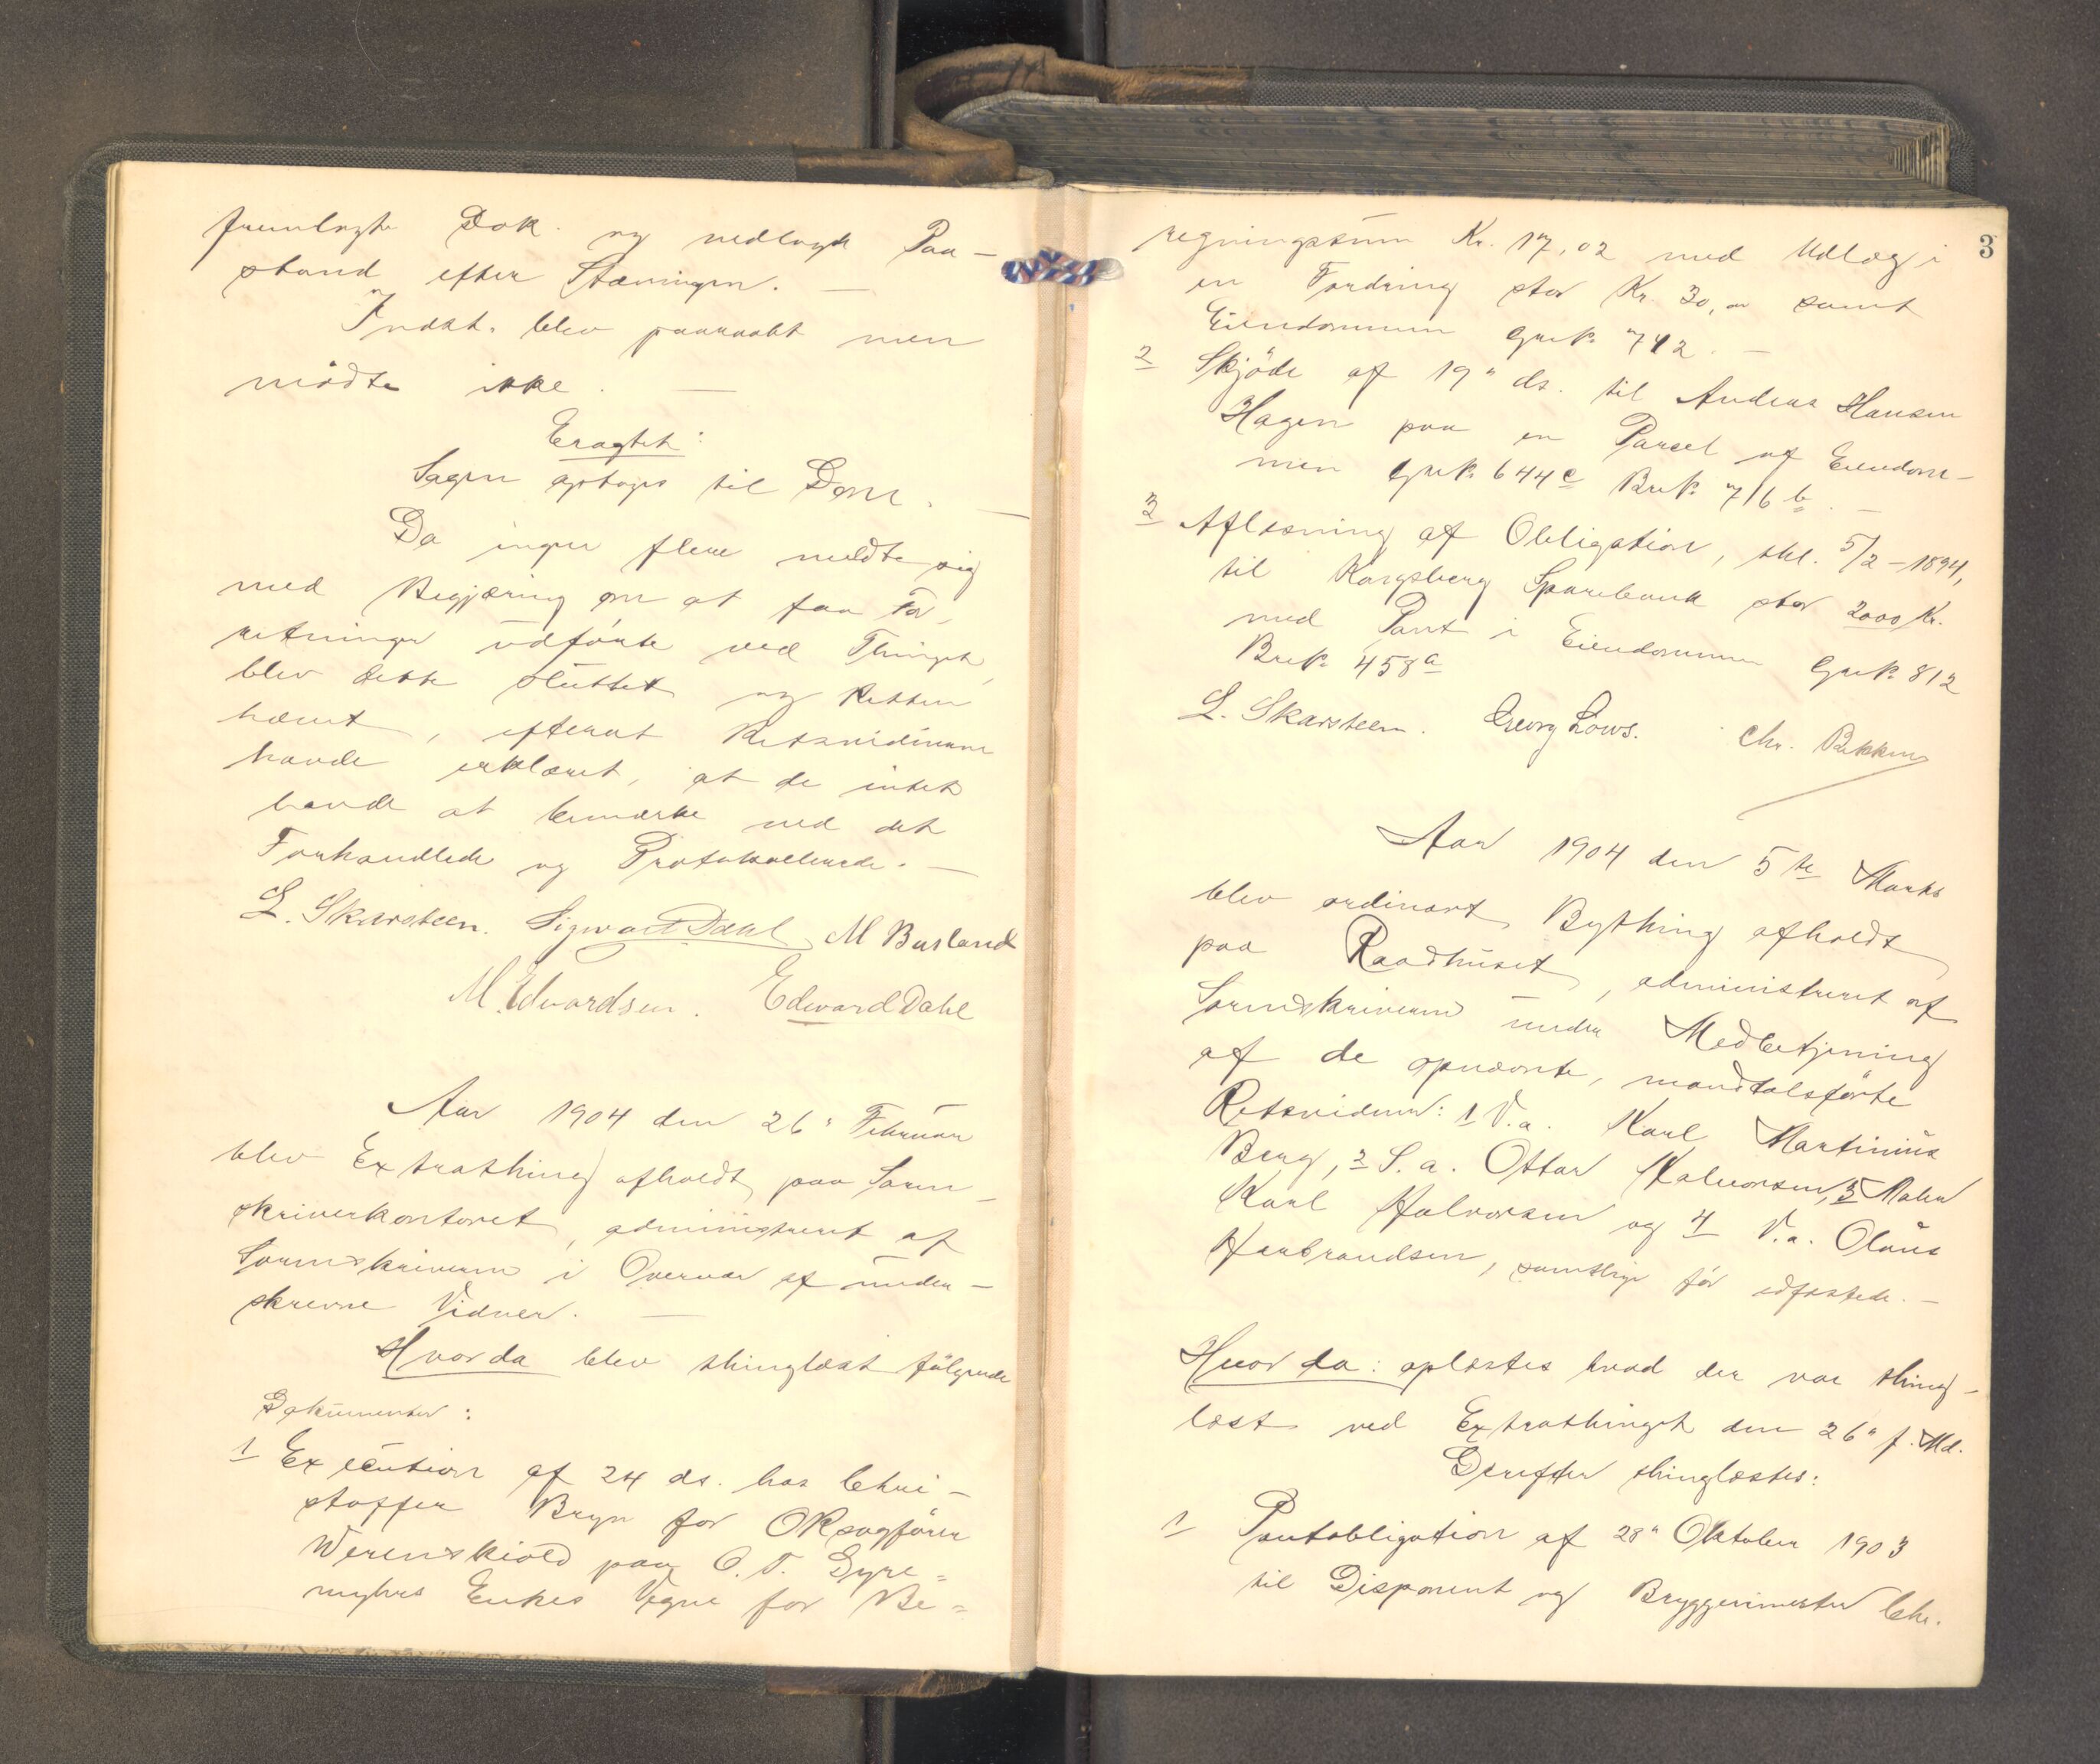 fremlagte Dok. og nedlagde Paa-
stand efter Stævningen. —
Indst. blev paaraabt men
mödte ikke. —
Eragtet:
Sagen optages til Dom. —
Da ingen flere meldte sig
med Begjæring om at faa For-
retninger udförte ved Thinget,
blev dette sluttet og Retten
hævet, efterat Retsvidnerne
havde erklæret, at de intet
havde at bemærke ved det
Forhandlede og Protokollerede. —
L. Skarsteen. Sigwart Dahl M Busland
M. Edvardsen. Edward Dahl
Aar 1904 den 26" Februar
blev Extrathing afholdt paa Soren-
skriverkontoret, administreret af
Sorenskriveren i Overvær af under-
skrevne Vidner. —
Hvorda blev thinglæst fölgende
Dokumenter:
1 Execution af 24 ds. hos Chri-
stoffer Bryn for ORsagförer
Werenskiold paa O. T. Gyre=
myhrs Enkes Vegne for Be=
3
regningssum Kr. 17,02 med Udlæg i
en Fordring stor Kr. 30,00 samt
Eiendommen Gr№ 742. —
2 Skjöde af 19" ds. til Andreas Hansen
Hagen paa en Parcel af Eiendom-
men Gr№ 644c Br№ 716b. —
3 Aflæsning af Obligation, thl. 5/2-1894,
til Kongsberg Sparebank stor 2000 Kr.
med Pant i Eiendommen Gr№ 812
Br№ 458a
L. Skarsteen. Georg Lows. Chr. Bekken
Aar 1904 den 5te Marts
blev ordinært Bything afholdt
paa Raadhuset, administreret af
Sorenskriveren under Medbetjening
af de opnævnte, mandtalsförte
Retsvidner: 1 V.a. Karl Martinius
Berg, 2 S.a. Ottar Halvorsen, 3 Maler
Karl Halvorsen og 4 V.a. Olaus
Herbrandsen, samtlige för edfæstede. —
Hvor da: oplæstes hvad der var thing-
læst ved Extrathinget den 26" f. Md.
Derefter thinglæstes:
1 Pantobligation af 28" Oktober 1903
til Disponent og Bryggerimester Chr.